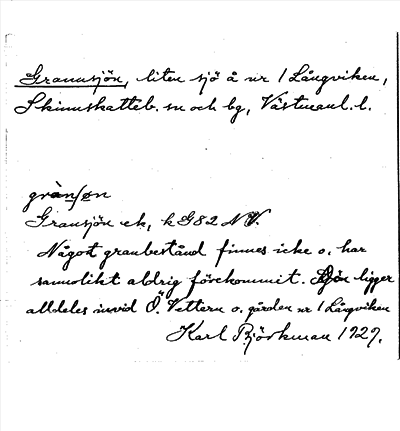 Grannsjön, liten sjö å nr 1 Långviken,
Skinnskatteb. sn och bg, Västmanl. l.
grànʃøn
Gransjön ek, k G82 NV.
Något granbestånd finnes icke o. har
sannolikt aldrig förekommit. Sjön ligger
alldeles invid Ö. Vettern o. gården nr 1 Långviken
Karl Björkman 1929.